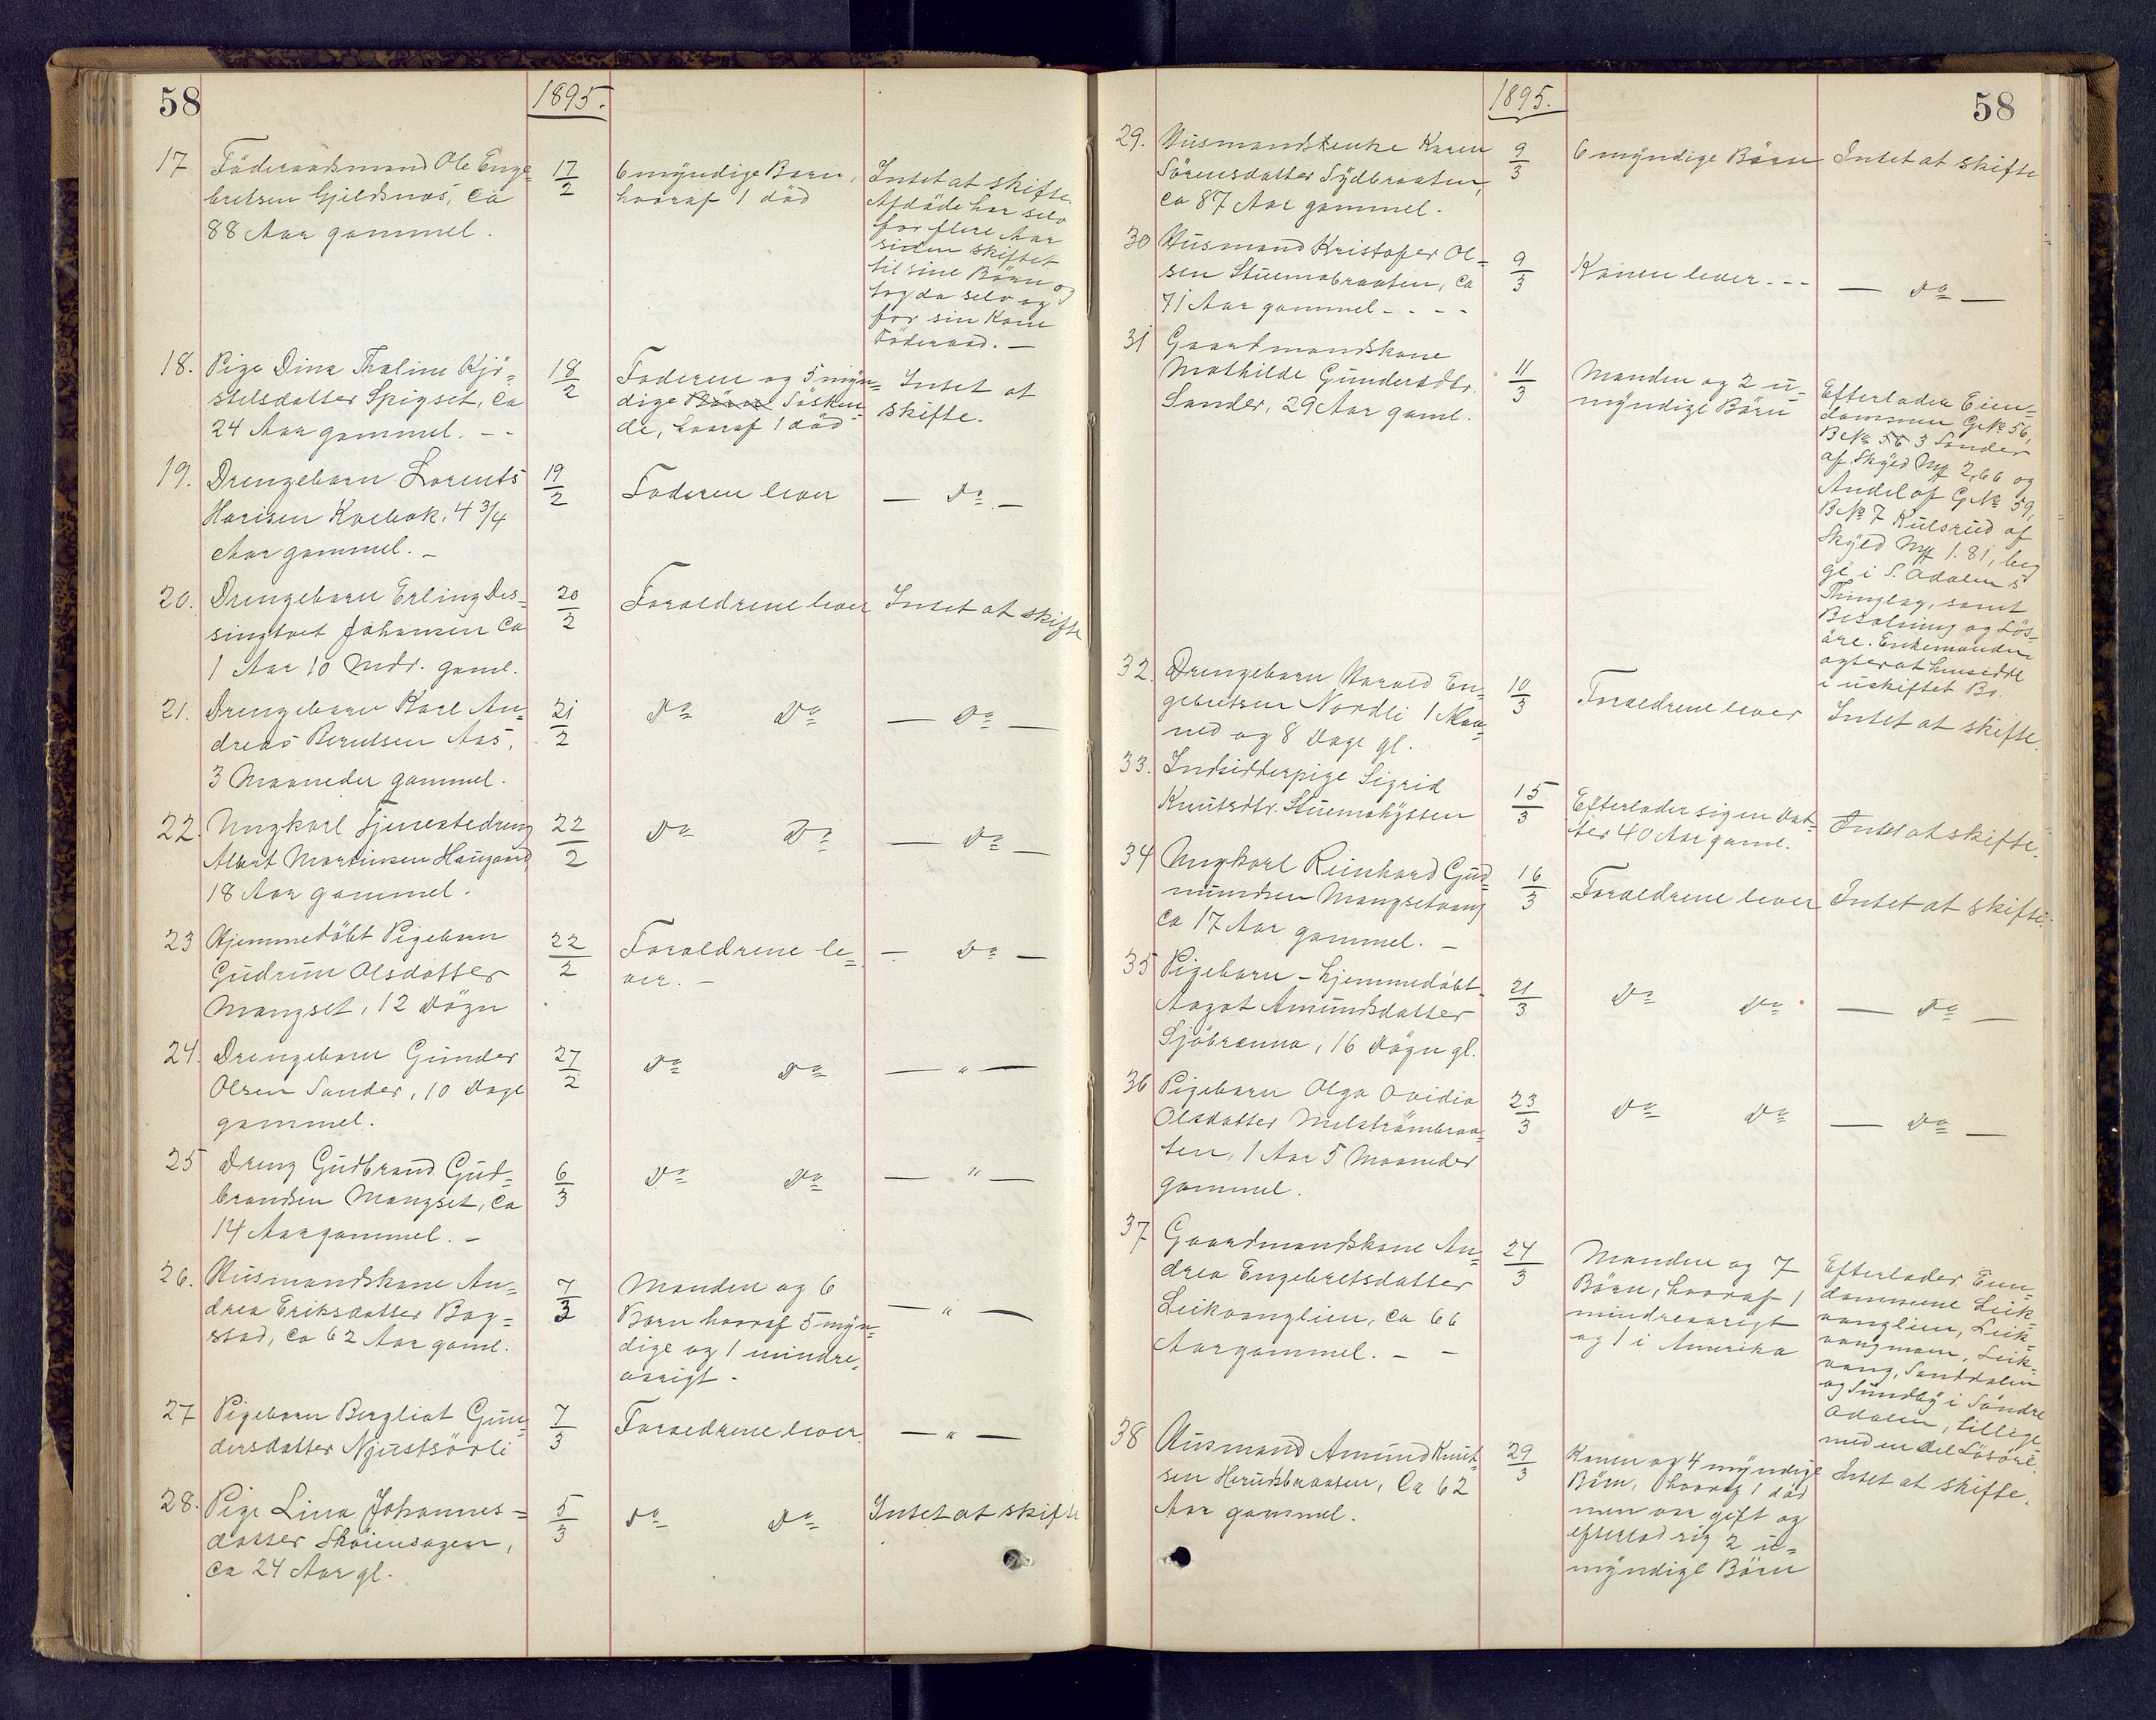 58
1895.
17 Föderaadsmand Ole Enge= 17/2 6 myndige Børn, Intet at skifte.
bretsen Gjeldsnæs, ca hvoraf 1 död Afdöde har selv
88 Aar gammel. for flere Aar
siden skiftet
til sine Börn og
tog da selv og
for sin Kone
Föderaad. —
18. Pige Dina Thaline Kjö= 18/2 Faderen og 5 myn= Intet at
stelsdatter Spigset, ca dige Börn Sösken= skifte.
24 Aar gammel. - - de, hvoraf 1 död
19. Drengebarn Lorents 19/2 Faderen lever — Do —
Harisen Kvebæk, 4 3/4
Aar gammel. —
20. Drengebarn Erling Des= 20/2 Forældrene lever Intet at skifte
singtvet Johansen ca
1 Aar 10 Mdr. gaml.
21. Drengebarn Karl An= 21/2 Do Do — Do —
dreas Berntsen Aas,
3 Maaneder gammel.
22. Ungkarl Tjenestedreng 22/2 Do Do — Do —
Albert Martinsen Haugaard,
18 Aar gammel.
23 Hjemmedöbt Pigebarn 22/2 Forældrene le= — Do —
Gudrun Olsdatter ver. —
Mangset, 12 Dögn
24. Drengebarn Gunder 27/2 Do Do — " —
Olsen Sander, 10 Dage
gammel.
25 Dreng Gudbrand Gud= 6/3 Do Do — " —
brandsen Mangset, ca
14 Aar gammel. —
26. Husmandskone An= 7/3 Manden og 6 — " —
drea Eriksdatter Bag= Børn hvoraf 5 myn=
stad, ca 62 Aar gaml. dige og 1 mindre=
aarigt.
27 Pigebarn Bergliot Gun= 7/3 Forældrene lever. — " —
dersdatter Njustsörli
28. Pige Lina Johannes= 5/3 Do Do Intet at skifte
datter Skoiensagen,
ca 24 Aar gl.
1895.
58
29. Husmandsenke Karen 9/3 6 myndige Børn Intet at skifte
Sörensdatter Sydbraaten,
ca 87 Aar gammel.
30 Husmand Kristofer Ol= 9/3 Konen lever - - - — Do —
sen Stuemobraaten, ca
71 Aar gammel - - - -
31 Gaardmandskone
Mathilde Gundersdtr. 11/3 Manden og 2 u= Efterlader Eien=
Sander, 29 Aar gaml. myndige Börn dommen GNo 56,
BNo 56 3 Sander
af Skyld Mk 2,66 og
Andel af GNo 59,
BNo 7 Kulsrud af
Skyld Mk 1.81, beg
ge i S. Aadalens
Thinglag, samt
Besætning og Lös=
öre. Enkemanden
agter at hensidde
i uskiftet Bo.
32. Drengebarn Harald En= 10/3 Forældrene lever Intet at skifte.
gebretsen Nordli 1 Maa=
ned og 8 Dage gl.
33. Indsidderpige Sigrid
Knutsdtr. Stuemohyssen 15/3 Efterlader sig en Dat= Intet at skifte.
ter 40 Aar gaml.
34 Ungkarl Reinhard Gud= 16/3 Forældrene lever Intet at skifte.
mundsen Mangsetvang
ca 17 Aar gammel. —
35 Pigebarn - hjemmedöbt 21/3 Do Do — Do —
Aagot Amundsdatter
Sjöbrenna, 16 Dögn gl.
36 Pigebarn Olga Ovidia 23/3 Do Do — Do —
Olsdatter Melströmbraa=
ten, 1 Aar 5 Maaneder
gammel.
37 Gaardmandskone An= 24/3 Manden og 7 Efterlader Eien=
drea Engebretsdatter Börn, hvoraf 1 dommene Leik=
Leikvanglien, ca 66 mindreaarigt vanglien, Leik=
Aar gammel. — — og 1 i Amerika vangmoen, Leik=
vang, Sanddalen
og Sundby i Söndre
Aadalen, tillige
med en Del Lösöre.
38 Husmand Amund Knut= 29/3 Konen og 4 myndige Intet at skifte.
sen Herudsbraaten, ca 62 Börn, hvoraf 1 död
Aar gammel. men var gift og
efterlod sig 2 u=
myndige Börn